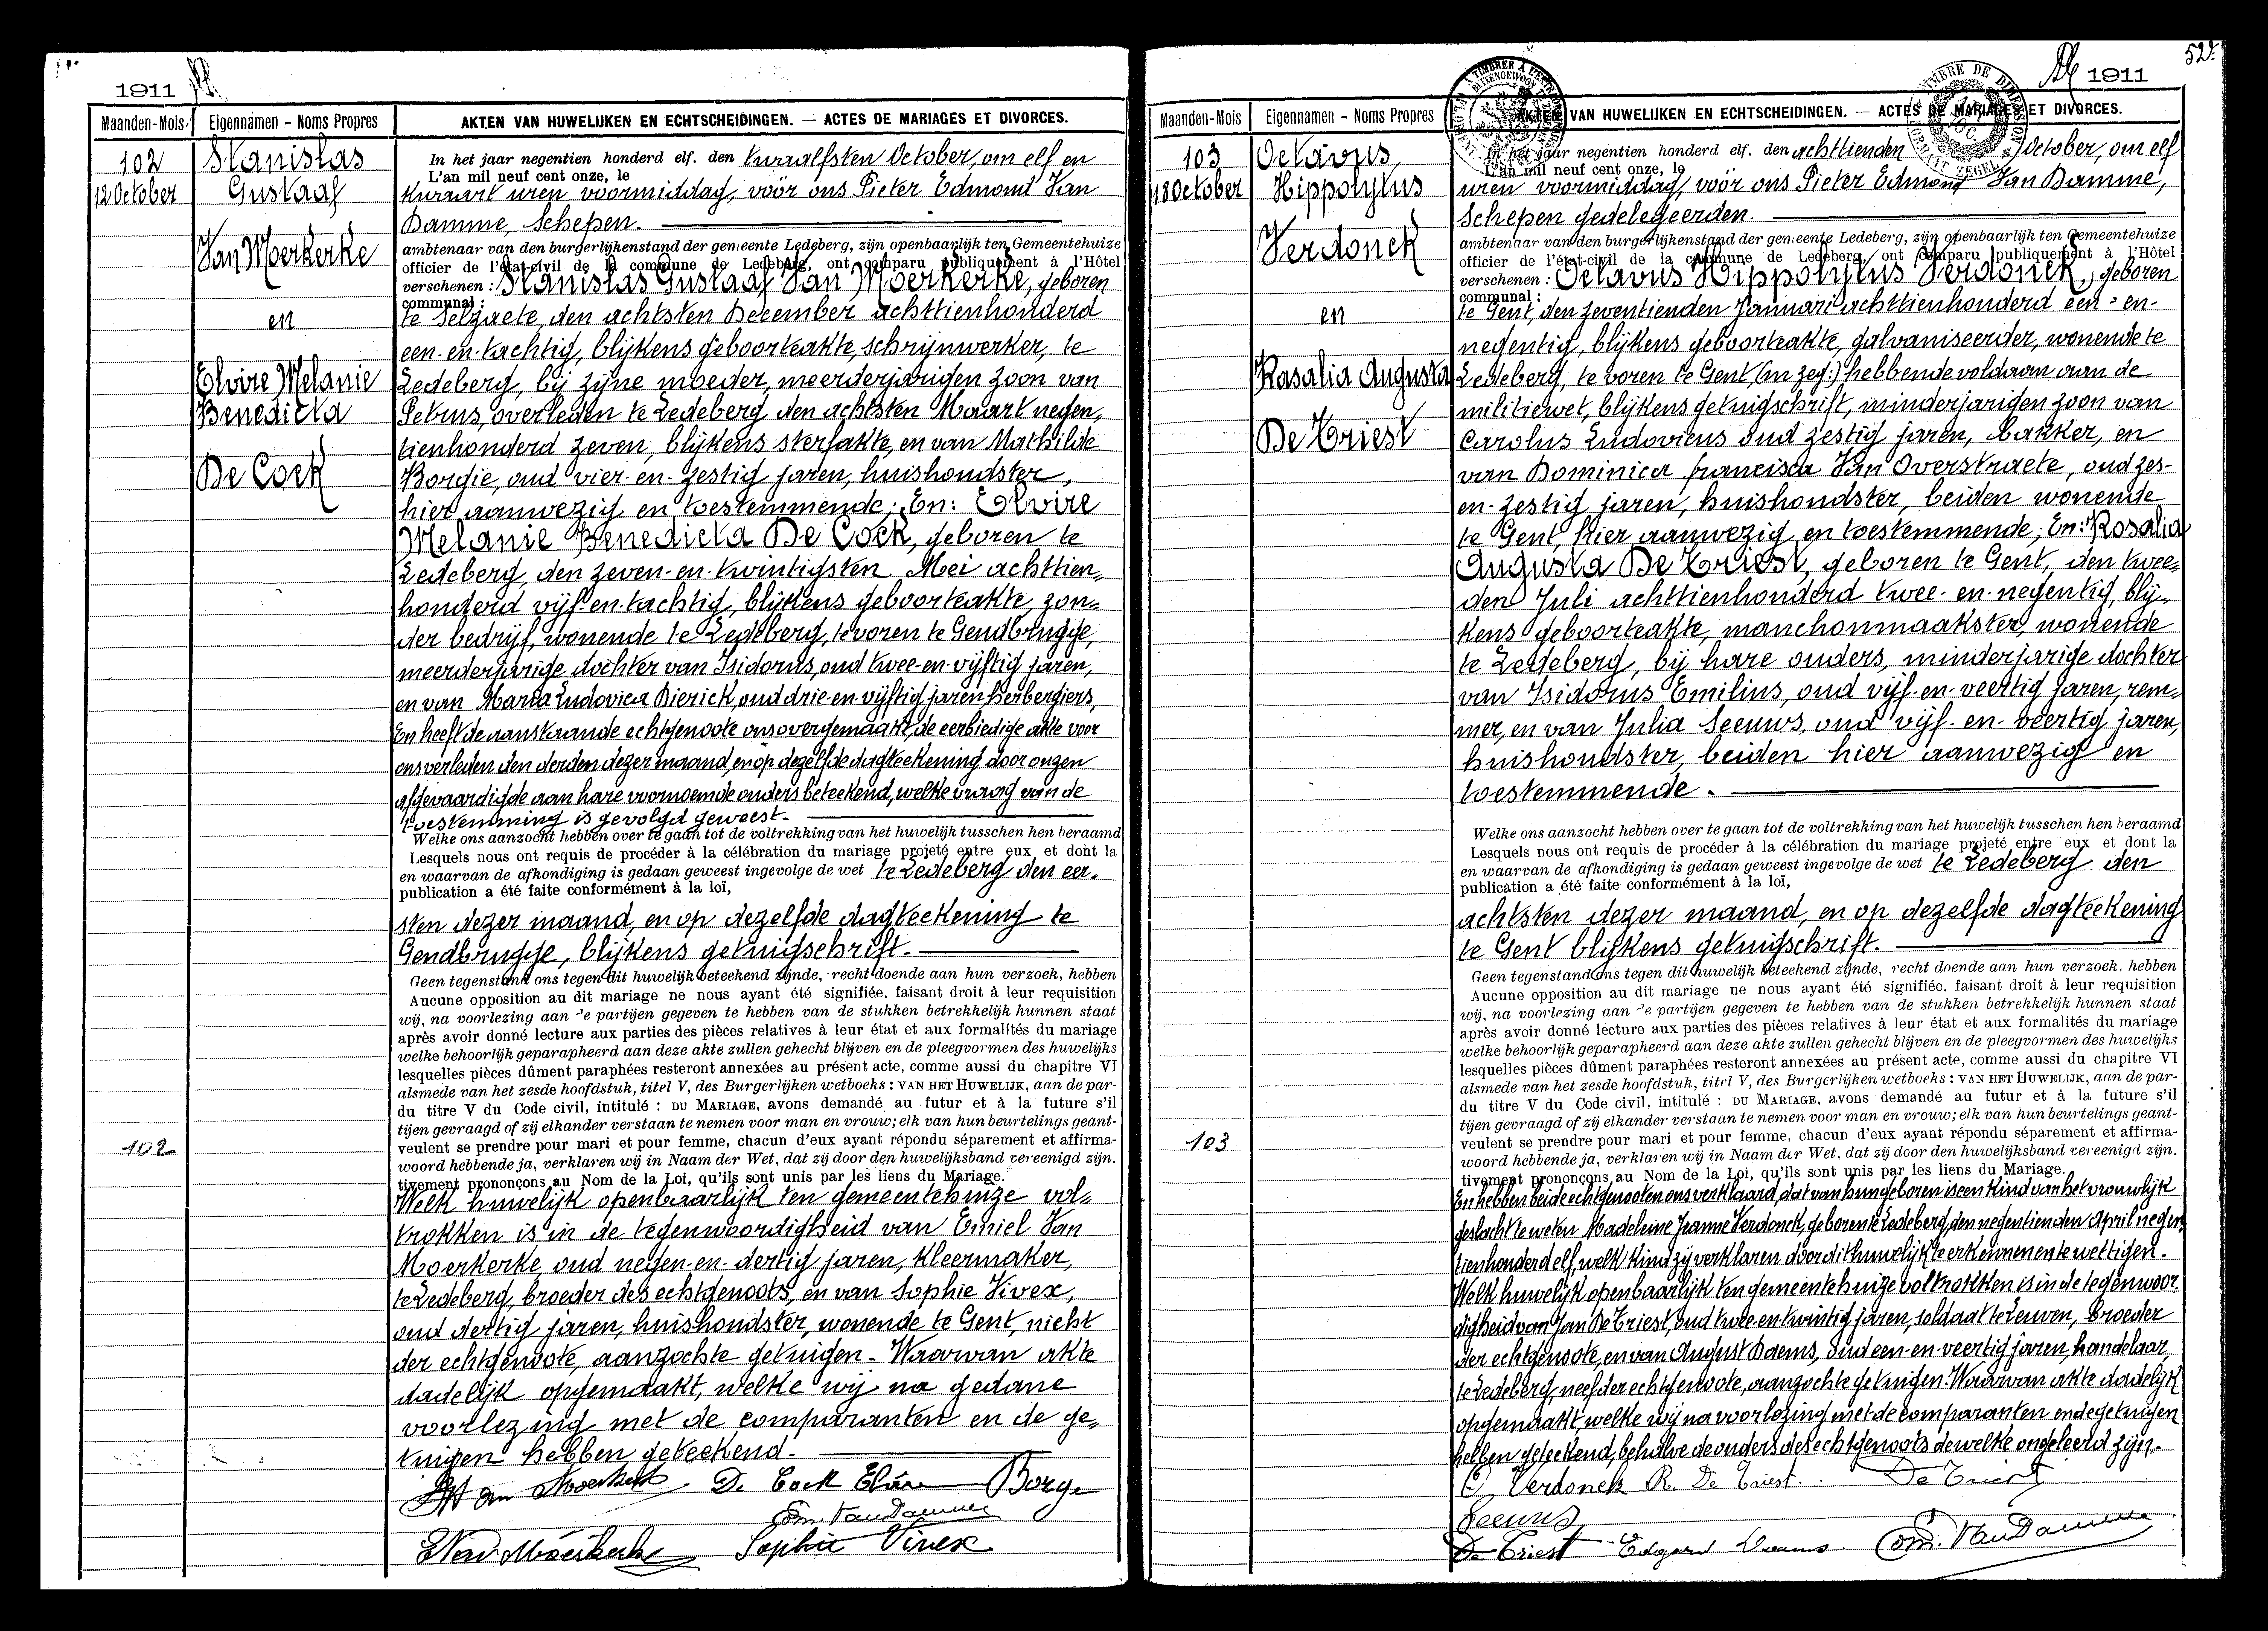 1911
Maanden-Mois
Eigennamen - Noms Propres
AKTEN VAN HUWELIJKEN EN ECHTSCHEIDINGEN. — ACTES DE MARIAGES ET DIVORCES.
102
12 October
Stanislas
Gustaaf
Van Moerkerke
en
Elvire Melanie
Benedicta
De Cock
In het jaar negentien honderd elf. den twaalfsten October, om elf en
L'an mil neuf cent onze, le
kwaart uren voormiddag, voór ons Pieter Edmond Van
Damme, Schepen.
ambtenaar van den burgerlijkenstand der gemeente Ledeberg, zijn openbaarlijk ten Gemeentehuize
officier de l'état-civil de la commune de Ledeberg, ont comparu publiquement à l'Hôtel
verschenen : Stanislas Gustaaf Van Moerkerke, geboren
communal :
te Selzaete, den achtsten December achttienhonderd
een-en-tachtig, blijkens geboorteakte, schrijnwerker, te
Ledeberg, bij zijne moeder, meerderjarigen zoon van
Petrus, overleden te Ledeberg, den achtsten Maart negen„
tienhonderd zeven, blijkens sterfakte, en van Mathilde
Borgie, oud vier-en-zestig jaren, huishoudster,
hier aanwezig en toestemmende; En: Elvire
Melanie Benedicta De Cock, geboren te
Ledeberg, den zeven-en-twintigsten Mei achttien„
honderd vijf-en-tachtig, blijkens geboorteakte, zon„
der bedrijf, wonende te Ledeberg, tevoren te Gendbrugge,
meerderjarige dochter van Isidorus, oud twee-en-vijftig jaren,
en van Maria Ludovica Dierick, oud drie-en-vijftig jaren, herbergiers,
En heeft de aanstaande echtgenoote ons overgemaakt, de eerbiedige akte voor
ons verleden den derden dezer maand, en op dezelfde dagteekening door onzen
afgevaardigde aan hare voornoemde ouders beteekend, welke vraag van de
toestemming is gevolgd geweest.
Welke ons aanzocht hebben over te gaan tot de voltrekking van het huwelijk tusschen hen beraamd
Lesquels nous ont requis de procéder à la célébration du mariage projeté entre eux et dont la
en waarvan de afkondiging is gedaan geweest ingevolge de wet te Ledeberg den eer„
publication a été faite conformément à la loi,
sten dezer maand, en op dezelfde dagteekening te
Gendbrugge, blijkens getuigschrift.
Geen tegenstand ons tegen dit huwelijk beteekend zijnde, recht doende aan hun verzoek, hebben
Aucune opposition au dit mariage ne nous ayant été signifiée, faisant droit à leur requisition
wij, na voorlezing aan de partijen gegeven te hebben van de stukken betrekkelijk hunnen staat
après avoir donné lecture aux parties des pièces relatives à leur état et aux formalités du mariage
welke behoorlijk geparapheerd aan deze akte zullen gehecht blijven en de pleegvormen des huwelijks
lesquelles pièces dûment paraphées resteront annexées au présent acte, comme aussi du chapitre VI
alsmede van het zesde hoofdstuk, titel V, des Burgerlijken wetboeks : VAN HET HUWELIJK, aan de par-
du titre V du Code civil, intitulé : DU MARIAGE, avons demandé au futur et à la future s'il
tijen gevraagd of zij elkander verstaan te nemen voor man en vrouw; elk van hun beurtelings geant-
veulent se prendre pour mari et pour femme, chacun d'eux ayant répondu séparement et affirma-
woord hebbende ja, verklaren wij in Naam der Wet, dat zij door den huwelijksband vereenigd zijn.
tivement prononçons au Nom de la Loi, qu'ils sont unis par les liens du Mariage.
102
Welk huwelijk openbaarlijk ten gemeentehuize vol„
trokken is in de tegenwoordigheid van Emiel Van
Moerkerke, oud negen-en-dertig jaren, kleermaker,
te Ledeberg, broeder des echtgenoots, en van Sophie Vivex,
oud dertig jaren, huishoudster, wonende te Gent, nicht
der echtgenoote, aanzochte getuigen. Waarvan akte
dadelijk opgemaakt, welke wij na gedane
voorlezing met de comparanten en de ge„
tuigen hebben geteekend.
De Cock Elvire
Borge
Edm. VanDamme
E Van Moerkerke
Sophie Vivex
52
1911
Maanden-Mois
Eigennamen - Noms Propres
AKTEN VAN HUWELIJKEN EN ECHTSCHEIDINGEN. — ACTES DE MARIAGES ET DIVORCES.
103
18 October
Octavus
Hippolytus
Verdonck
en
Rosalia Augusta
De Triest
In het jaar negentien honderd elf. den achttienden October, om elf
L'an mil neuf cent onze, le
uren voormiddag, voór ons Pieter Edmond Van Damme,
Schepen gedelegeerden.
ambtenaar van den burgerlijkenstand der gemeente Ledeberg, zijn openbaarlijk ten Gemeentehuize
officier de l'état-civil de la commune de Ledeberg, ont comparu publiquement à l'Hôtel
verschenen : Octavus Hippolytus Verdonck, geboren
communal :
te Gent, den zeventienden Januari achttienhonderd een-en-
negentig, blijkens geboorteakte, galvaniseerder, wonende te
Ledeberg, te voren te Gent (en zeg:) hebbende voldaan aan de
militiewet, blijkens getuigschrift, minderjarigen zoon van
Carolus Ludovicus oud zestig jaren, bakker, en
van Dominica francisca Van Overstraete, oud zes-
en-zestig jaren, huishoudster, beiden wonende
te Gent, hier aanwezig en toestemmende; En: Rosalia
Augusta De Triest, geboren te Gent, den twee„
den Juli achttienhonderd twee-en-negentig, blij„
kens geboorteakte, manchonmaakster, wonende
te Ledeberg, bij hare ouders, minderjarige dochter
van Isidorus Emilius, oud vijf-en-veertig jaren, rem„
mer, en van Julia Seeuws, oud vijf-en-veertig jaren,
huishoudster, beiden hier aanwezig en
toestemmende.
Welke ons aanzocht hebben over te gaan tot de voltrekking van het huwelijk tusschen hen beraamd
Lesquels nous ont requis de procéder à la célébration du mariage projeté entre eux et dont la
en waarvan de afkondiging is gedaan geweest ingevolge de wet te Ledeberg den
publication a été faite conformément à la loi,
achtsten dezer maand, en op dezelfde dagteekening
te Gent blijkens getuigschrift.
Geen tegenstand ons tegen dit huwelijk beteekend zijnde, recht doende aan hun verzoek, hebben
Aucune opposition au dit mariage ne nous ayant été signifiée, faisant droit à leur requisition
wij, na voorlezing aan de partijen gegeven te hebben van de stukken betrekkelijk hunnen staat
après avoir donné lecture aux parties des pièces relatives à leur état et aux formalités du mariage
welke behoorlijk geparapheerd aan deze akte zullen gehecht blijven en de pleegvormen des huwelijks
lesquelles pièces dûment paraphées resteront annexées au présent acte, comme aussi du chapitre VI
alsmede van het zesde hoofdstuk, titel V, des Burgerlijken wetboeks : VAN HET HUWELIJK, aan de par-
du titre V du Code civil, intitulé : DU MARIAGE, avons demandé au futur et à la future s'il
tijen gevraagd of zij elkander verstaan te nemen voor man en vrouw; elk van hun beurtelings geant-
veulent se prendre pour mari et pour femme, chacun d'eux ayant répondu séparement et affirma-
woord hebbende ja, verklaren wij in Naam der Wet, dat zij door den huwelijksband vereenigd zijn.
tivement prononçons au Nom de la Loi, qu'ils sont unis par les liens du Mariage.
103
En hebben beide echtgenooten ons verklaard, dat van hun geboren is een kind van het vrouwlijk
geslacht te weten Madeleine Jeanne Verdonck, geboren te Ledeberg, den negentienden April negen„
tienhonderd elf, welk kind zij verklaren door dit huwelijk te erkennen en te wettigen.
Welk huwelijk openbaarlijk ten gemeentehuize voltrokken is in de tegenwoor„
digheid van Jan De Triest, oud twee-en-twintig jaren, soldaat te Leuven, broeder
der echtgenoote, en van August Daems, oud een-en-veertig jaren, handelaar,
te Ledeberg, neef der echtgenoote, aanzochte getuigen. Waarvan akte dadelijk
opgemaakt, welke wij na voorlezing met de comparanten en de getuigen
hebben geteekend, behalve de ouders des echtgenoots dewelke ongeleerd zijn.
O Verdonck
R. De Triest.
De Triest
Seeuws
De Triest
Edgard Daems
Edm. VanDamme